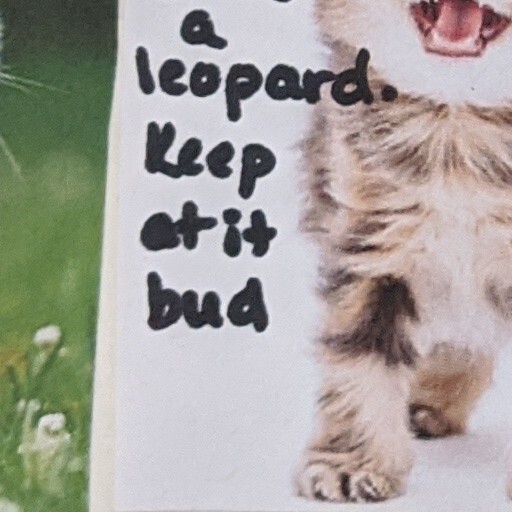 a
leopard.
Keep
at it
bud